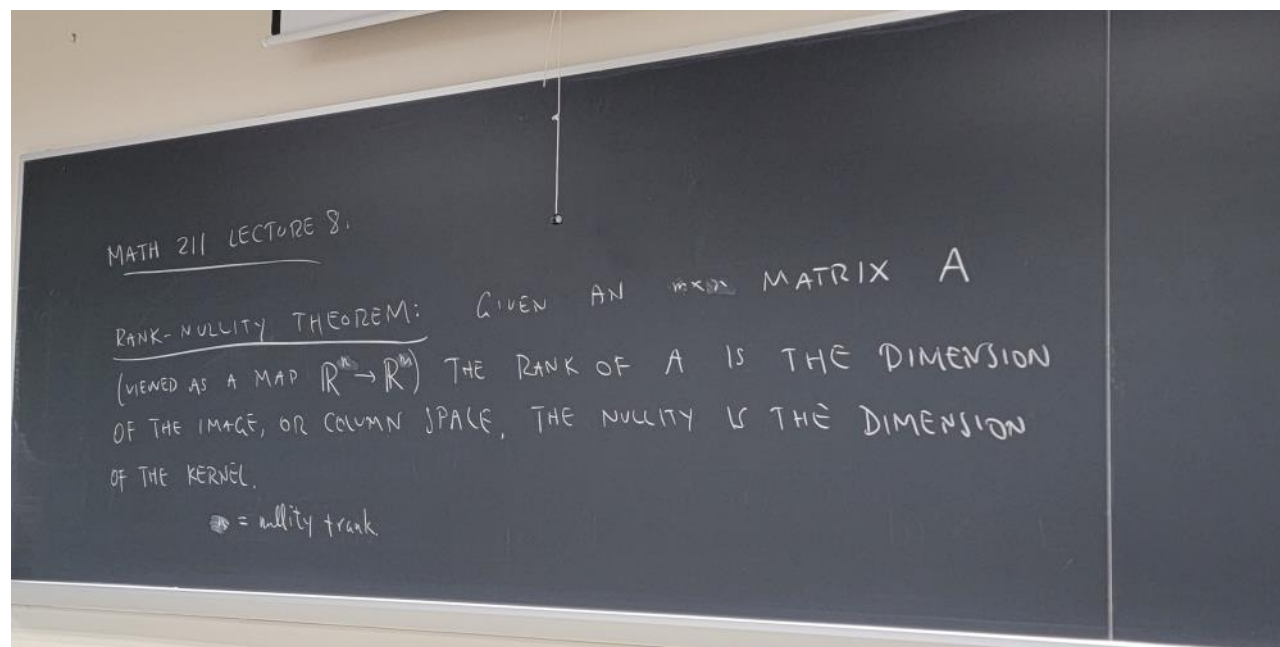 MATH 211 LECTURE 8:
RANK-NULLITY THEOREM: GIVEN AN m×n MATRIX A
(VIEWED AS A MAP ℝⁿ → ℝᵐ) THE RANK OF A IS THE DIMENSION
OF THE IMAGE, OR COLUMN SPACE, THE NULLITY IS THE DIMENSION
OF THE KERNEL.
= nullity + rank